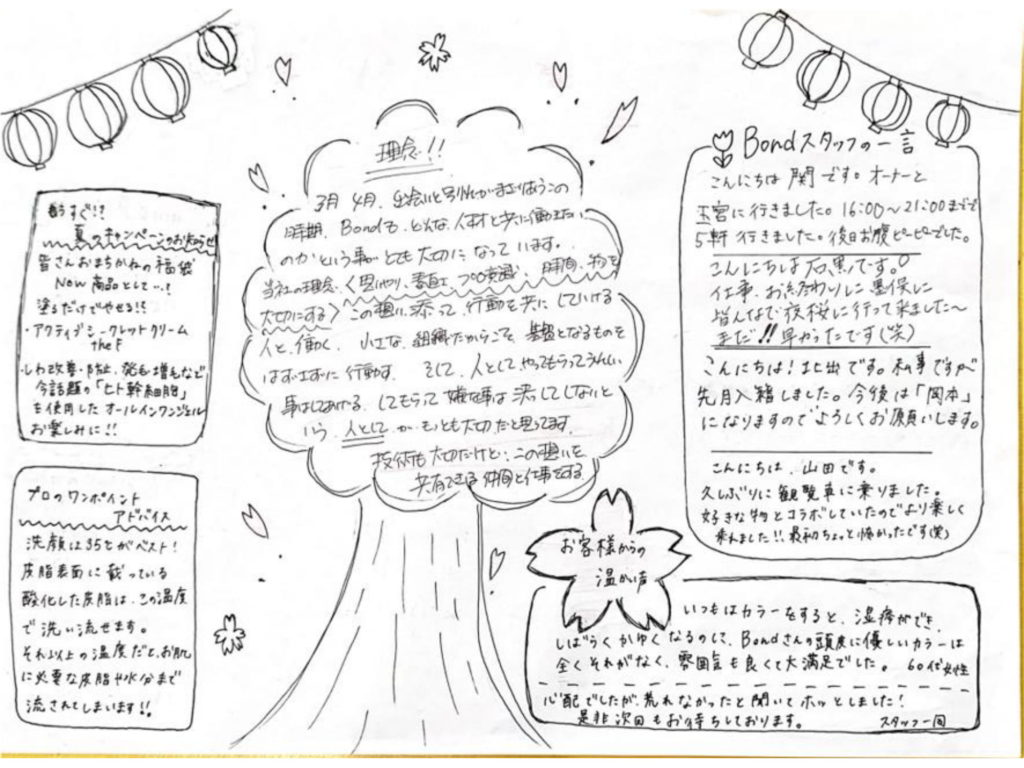 理念!!
3月 4月、出会いと別れがまざりあうこの
時期、Bondも、どんな人材と共に働きたい
のかという事がとても大切になっています。
当社の理念、く思いやり、素直、プロ意識、時間、物を
大切にする〉この想いに添って、行動を共にしていける
人と、働く。小さな、組織だからこそ、基盤となるものを
はずさずに行動す。そして、人としてやってもらってうれしい
事はしてあげる。してもらって嫌な事は決してしないと
いう、人としてがもっとも大切だと思ってます。
技術も大切だけど、この想いを
共有できる仲間と仕事をする。
もうすぐ!!
夏のキャンペーンのお知らせ
皆さんおまちかねの福袋
Now 商品として…!
塗るだけでやせる!!
・アクティブシークレットクリーム
the F
・しわ改善・防止、発毛・増毛など
今話題の「ヒト幹細胞」
を使用したオールインワンジェル
お楽しみに!!
プロのワンポイント
アドバイス
洗顔は35℃がベスト!
皮脂表面に載っている
酸化した皮脂は、この温度
で洗い流せます。
それ以上の温度だと、お肌
に必要な皮脂や水分まで
流されてしまいます!!
Bondスタッフの一言
こんにちは 関です。オーナーと
玉宮に行きました。16:00〜21:00までで
5軒行きました。後日お腹ピーピーでした。
こんにちは石黒です。
仕事、お終わりに墨俣に
皆んなで夜桜に行って来ました〜
まだ!!早かったです(笑)
こんにちは!北出です。私事ですが
先月入籍しました。今後は「岡本」
になりますのでよろしくお願いします。
こんにちは、山田です。
久しぶりに観覧車に乗りました。
好きな物とコラボしていたのでより楽しく
乗れました!!最初ちょっと怖かったです(笑)
お客様からの
温かい声
いつもはカラーをすると、湿疹ができ、
しばらくかゆくなるのに、Bondさんの頭皮に優しいカラーは
全くそれがなく、雰囲気も良くて大満足でした。 60代女性
心配でしたが、荒れなかったと聞いてホッとしました!
是非次回もお待ちしております。 スタッフ一同